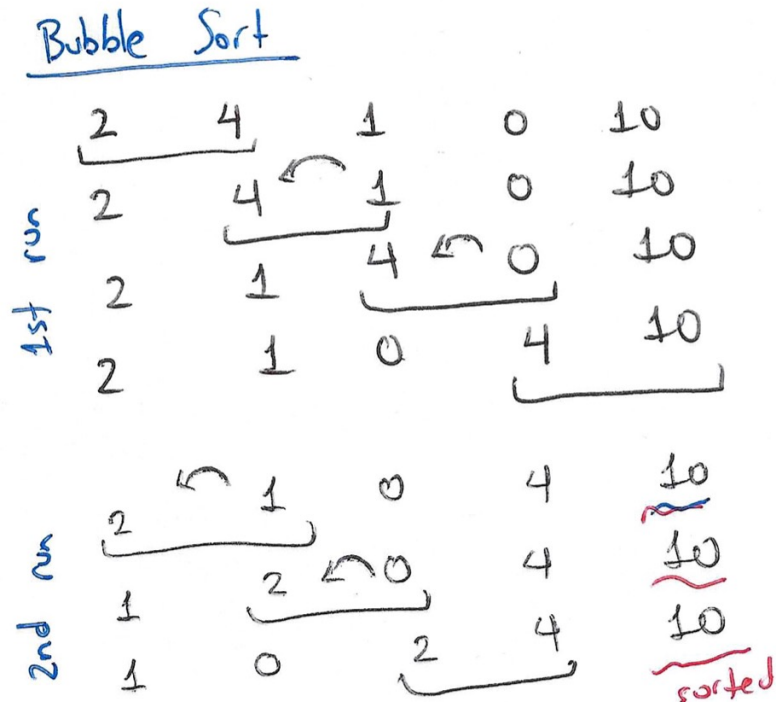 Bubble Sort
2 4 1 0 10
1st run
2 4 1 0 10
2 1 4 0 10
2 1 0 4 10
2nd run
2 1 0 4 10
1 2 0 4 10
1 0 2 4 10
sorted